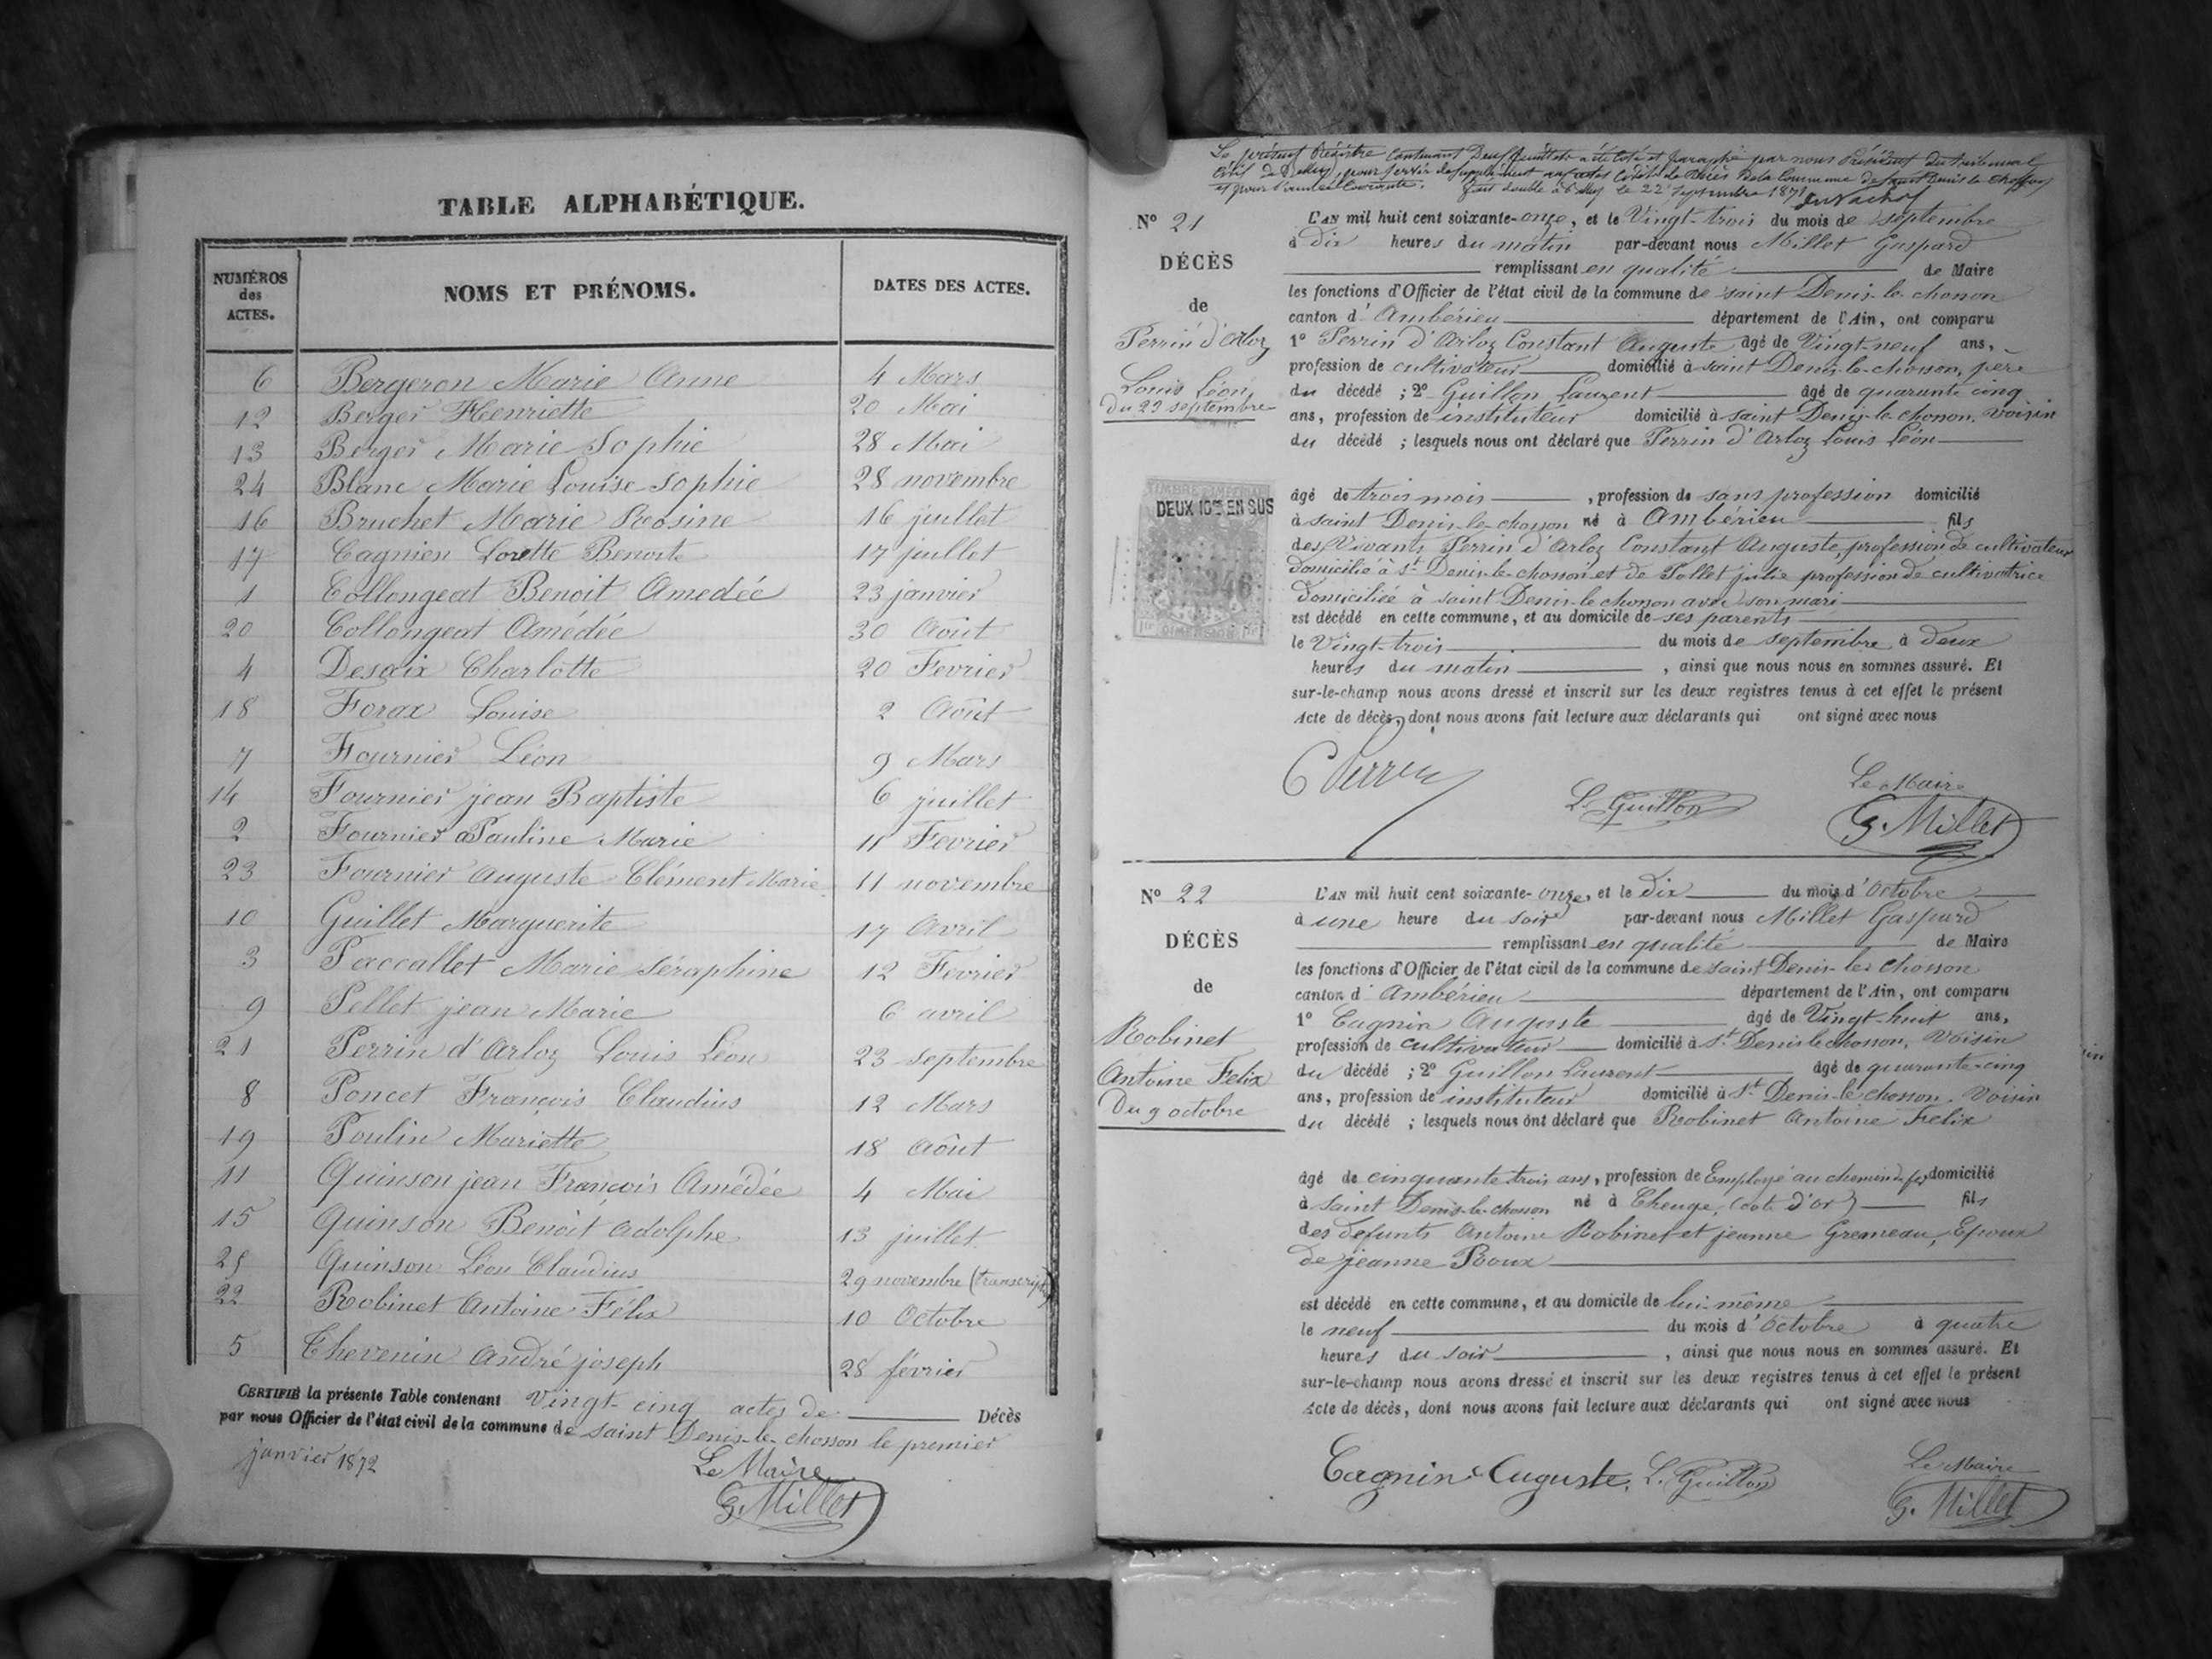 TABLE ALPHABÉTIQUE.
NUMÉROS des ACTES.
NOMS ET PRÉNOMS.
DATES DES ACTES.
6 Bergeron Marie Anne 4 Mars
12 Berger Henriette 20 Mai
13 Berger Marie Sophie 28 Mai
24 Blanc Marie Louise Sophie 28 novembre
16 Bruchet Marie Rosine 16 juillet
17 Cagnien Lorette Benoite 17 juillet
1 Collongeat Benoit Amedée 23 janvier
20 Collongeat Amédée 30 Août
4 Desaix Charlotte 20 Fevrier
18 Forax Louise 2 Août
7 Fournier Léon 9 Mars
14 Fournier jean Baptiste 6 juillet
2 Fournier Pauline Marie 11 Fevrier
23 Fournier Auguste Clément Marie 11 novembre
10 Guillet Marguerite 17 Avril
3 Paccallet Marie Séraphine 12 Fevrier
9 Pellet jean Marie 6 avril
21 Perrin d'Arloz Louis Léon 23 septembre
8 Poncet François Claudius 12 Mars
19 Poulin Mariette 18 Août
11 Quinson jean François Amédée 4 Mai
15 Quinson Benoit Adolphe 13 juillet
25 Quinson Léon Claudius 29 novembre (transcript)
22 Robinet Antoine Félix 10 Octobre
5 Thevenin André joseph 28 février
CERTIFIÉ la présente Table contenant Vingt-cinq actes de Décès
par nous Officier de l'état civil de la commune de saint Denis-le-chosson le premier
janvier 1872
Le Maire
G. Millet
Le présent Régistre contenant Deux feuillets a été coté et paraphé par nous Président du tribunal
civil de Belley, pour servir de supplément aux actes civils de Décès de la Commune de saint Denis le Chosson
et pour l'année courante. Fait double à Belley le 22 septembre 1871
N° 21
DÉCÈS
de
Perrin d'Arloz
Louis Léon
du 23 septembre
TIMBRE IMPERIAL
DEUX 10ES EN SUS
DIMENSION
L'AN mil huit cent soixante-onze, et le Vingt-trois du mois de septembre
à dix heures du matin par-devant nous Millet Gaspard
remplissant en qualité de Maire
les fonctions d'Officier de l'état civil de la commune de saint Denis-le-chosson
canton d'Ambérieu département de l'Ain, ont comparu
1° Perrin d'Arloz Constant Auguste âgé de Vingt-neuf ans,
profession de cultivateur domicilié à saint Denis-le-chosson, père
du décédé ; 2° Guillon Laurent âgé de quarante cinq
ans, profession de instituteur domicilié à saint Denis-le-chosson. Voisin
du décédé ; lesquels nous ont déclaré que Perrin d'Arloz Louis Léon
âgé de trois mois, profession de sans profession domicilié
à saint Denis-le-chosson né à Ambérieu fils
des Vivants Perrin d'Arloz Constant Auguste, profession de cultivateur
domicilié à St Denis-le-chosson et de Pollet julie profession de cultivatrice
domiciliée à saint Denis-le chosson avec son mari
est décédé en cette commune, et au domicile de ses parents
le Vingt-trois du mois de septembre à deux
heures du matin, ainsi que nous nous en sommes assuré. Et
sur-le-champ nous avons dressé et inscrit sur les deux registres tenus à cet effet le présent
Acte de décès, dont nous avons fait lecture aux déclarants qui ont signé avec nous
C Perrin
L. Guillon
Le Maire
G. Millet
N° 22
DÉCÈS
de
Robinet
Antoine Felix
Du 9 octobre
L'AN mil huit cent soixante-onze, et le dix du mois d'Octobre
à une heure du soir par-devant nous Millet Gaspard
remplissant en qualité de Maire
les fonctions d'Officier de l'état civil de la commune de saint Denis-le-Chosson
canton d'Ambérieu département de l'Ain, ont comparu
1° Cagnin Auguste âgé de Vingt-huit ans,
profession de cultivateur domicilié à St Denis le chosson, Voisin
du décédé ; 2° Guillon Laurent âgé de quarante-cinq
ans, profession de instituteur domicilié à St Denis-le chosson. Voisin
du décédé ; lesquels nous ont déclaré que Robinet Antoine Felix
âgé de cinquante trois ans, profession de Employé au chemin de fer domicilié
à saint Denis-le-chosson né à Cheuge, (cote d'or) fils
des défunts Antoine Robinet et jeanne Gremeau, Epoux
de jeanne Roux
est décédé en cette commune, et au domicile de lui-même
le neuf du mois d'Octobre à quatre
heures du soir, ainsi que nous nous en sommes assuré. Et
sur-le-champ nous avons dressé et inscrit sur les deux registres tenus à cet effet le présent
Acte de décès, dont nous avons fait lecture aux déclarants qui ont signé avec nous
Cagnin Auguste. L. Guillon
Le Maire
G. Millet